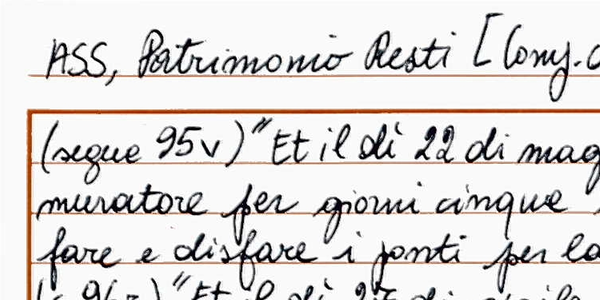 ASS, Patrimonio Resti [Cong.
(segue 95v) "Et il dì 22 di mag
muratore per giorni cinque
fare e disfare i ponti per la
"Et il dì 27 di